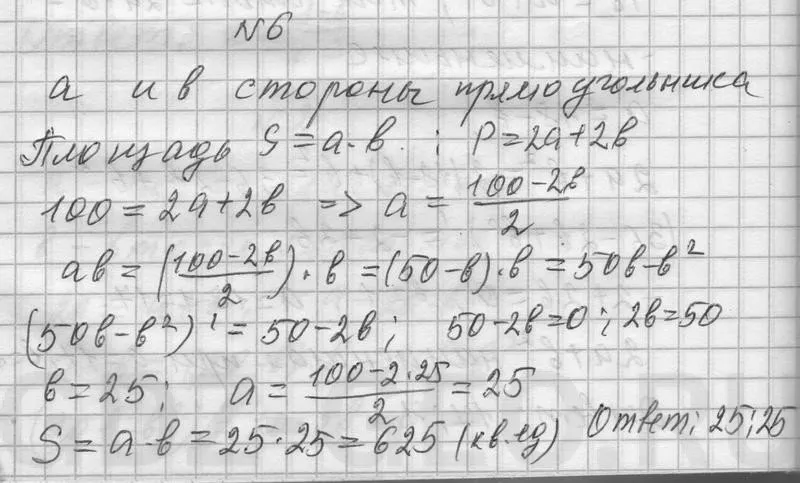 №6
а и в стороны прямоугольника
Площадь S=a·в ; P=2a+2в
100=2a+2в => a = (100-2в)/2
aв = ((100-2в)/2)·в = (50-в)·в = 50в-в²
(50в-в²)' = 50-2в; 50-2в=0; 2в=50
в=25; a = (100-2·25)/2 = 25
S=a·в=25·25=625 (кв.ед) Ответ: 25; 25